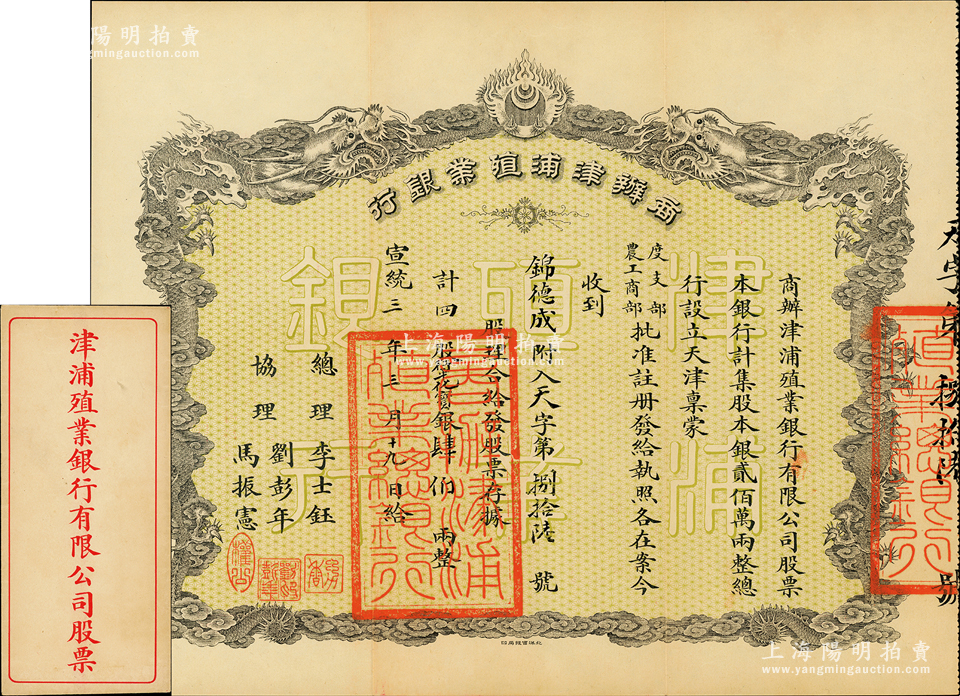 陽明拍賣
yangmingauction.com
商辦津浦殖業銀行
津浦
殖業
銀行
商辦津浦殖業銀行有限公司股票
本銀行計集股本銀貳佰萬兩整總
行設立天津稟蒙
度支部
農工商部
批准註册發給執照各在案今
收到
錦德成附入天字第捌拾陸號
計四股行化寶銀肆佰兩整
股理合給發股票存據
宣統三年三月十九日給
總理李士鈺
協理劉彭年
馬振憲
天字第捌拾陸號
北洋官報局印
津浦殖業銀行有限公司股票
上海陽明拍賣
www.yangmingauction.com
上海陽明拍賣
www.yangmingauction.com